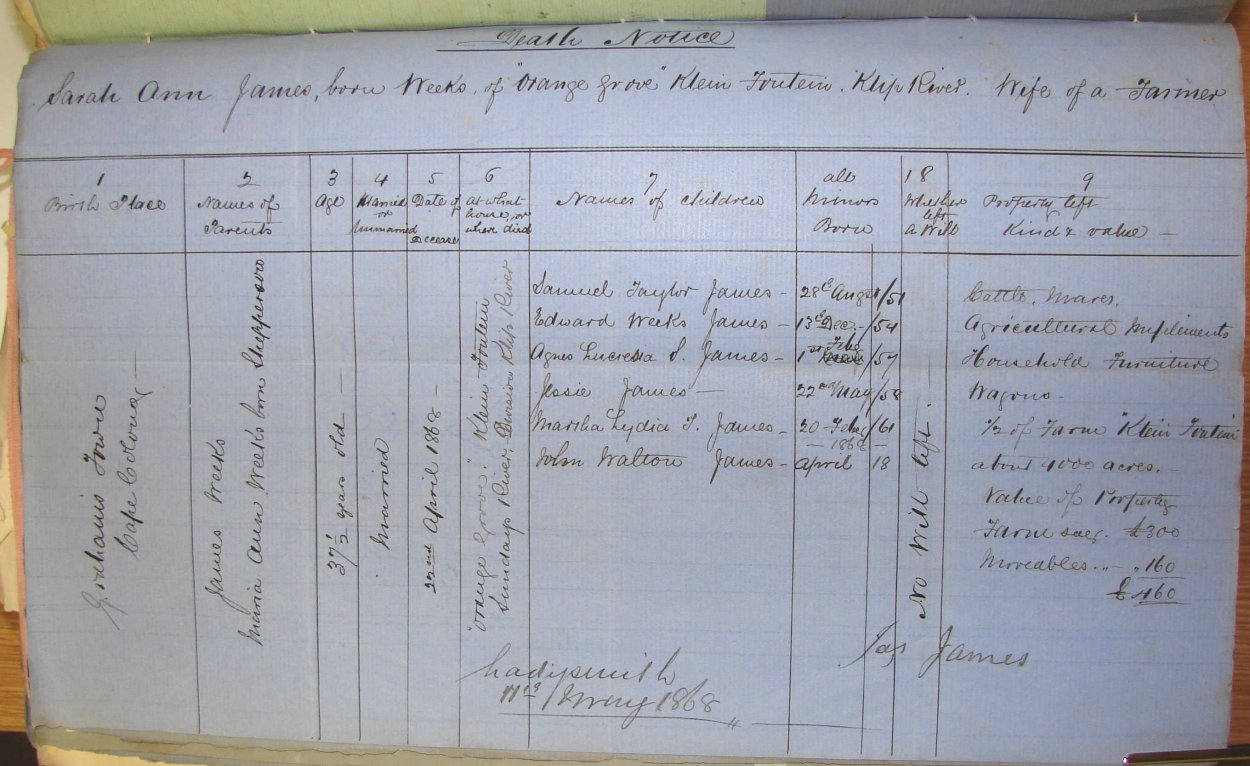 Death Notice
Sarah Ann James, born Weeks, of "Orange Grove" Klein Fontein, Klip River. Wife of a Farmer
1
Birth Place
2
Names of
Parents
3
Age
4
Married
or
Unmarried
5
Date of
Decease
6
at what
house, or
where died
7
Names of Children
all
Minors
Born
8
Whether
left
a Will
9
Property left
Kind & value —
Grahams Town
Cape Colony —
James Weeks
Maria Ann Weeks born Shepperson
37½ years old —
Married
22nd April 1868 —
"Orange Grove", Klein Fontein
Sundays River, Division Klip River
Samuel Taylor James — 28th Augst /51
Edward Weeks James — 13th Dec. — /54
Agnes Lucresia S. James — 1st Feby /57
Jessie James — 22nd May /58
Martha Lydia T. James — 20 Feby /61
— 1868 —
John Walton James — April 18
No Will left.
Cattle, Mares,
Agricultural Implements
Household Furniture
Wagons —
1/2 of Farm "Klein Fontein"
about 4000 acres. —
Value of Property
Farm say. £300
Moveables. „ — „ 160
£460
Jas James
Ladysmith
May 1868